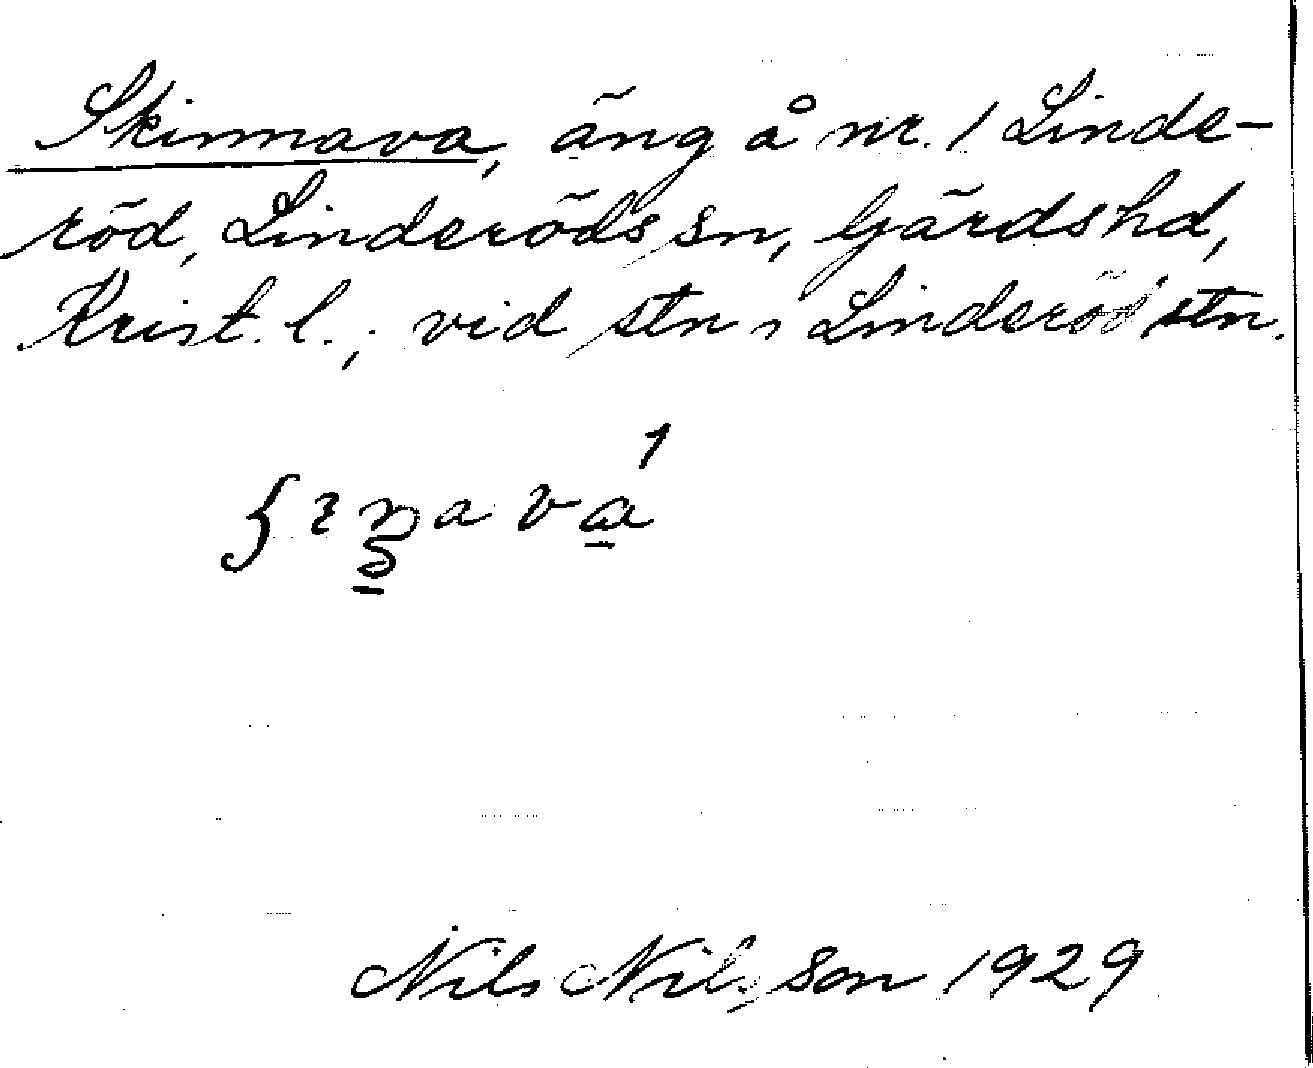 Skinnava, äng å nr. 1 Linde-
röd, Linderöds sn, Gärds hd,
Krist. l., vid stn s Linderöd stn.
Nils Nilsson 1929